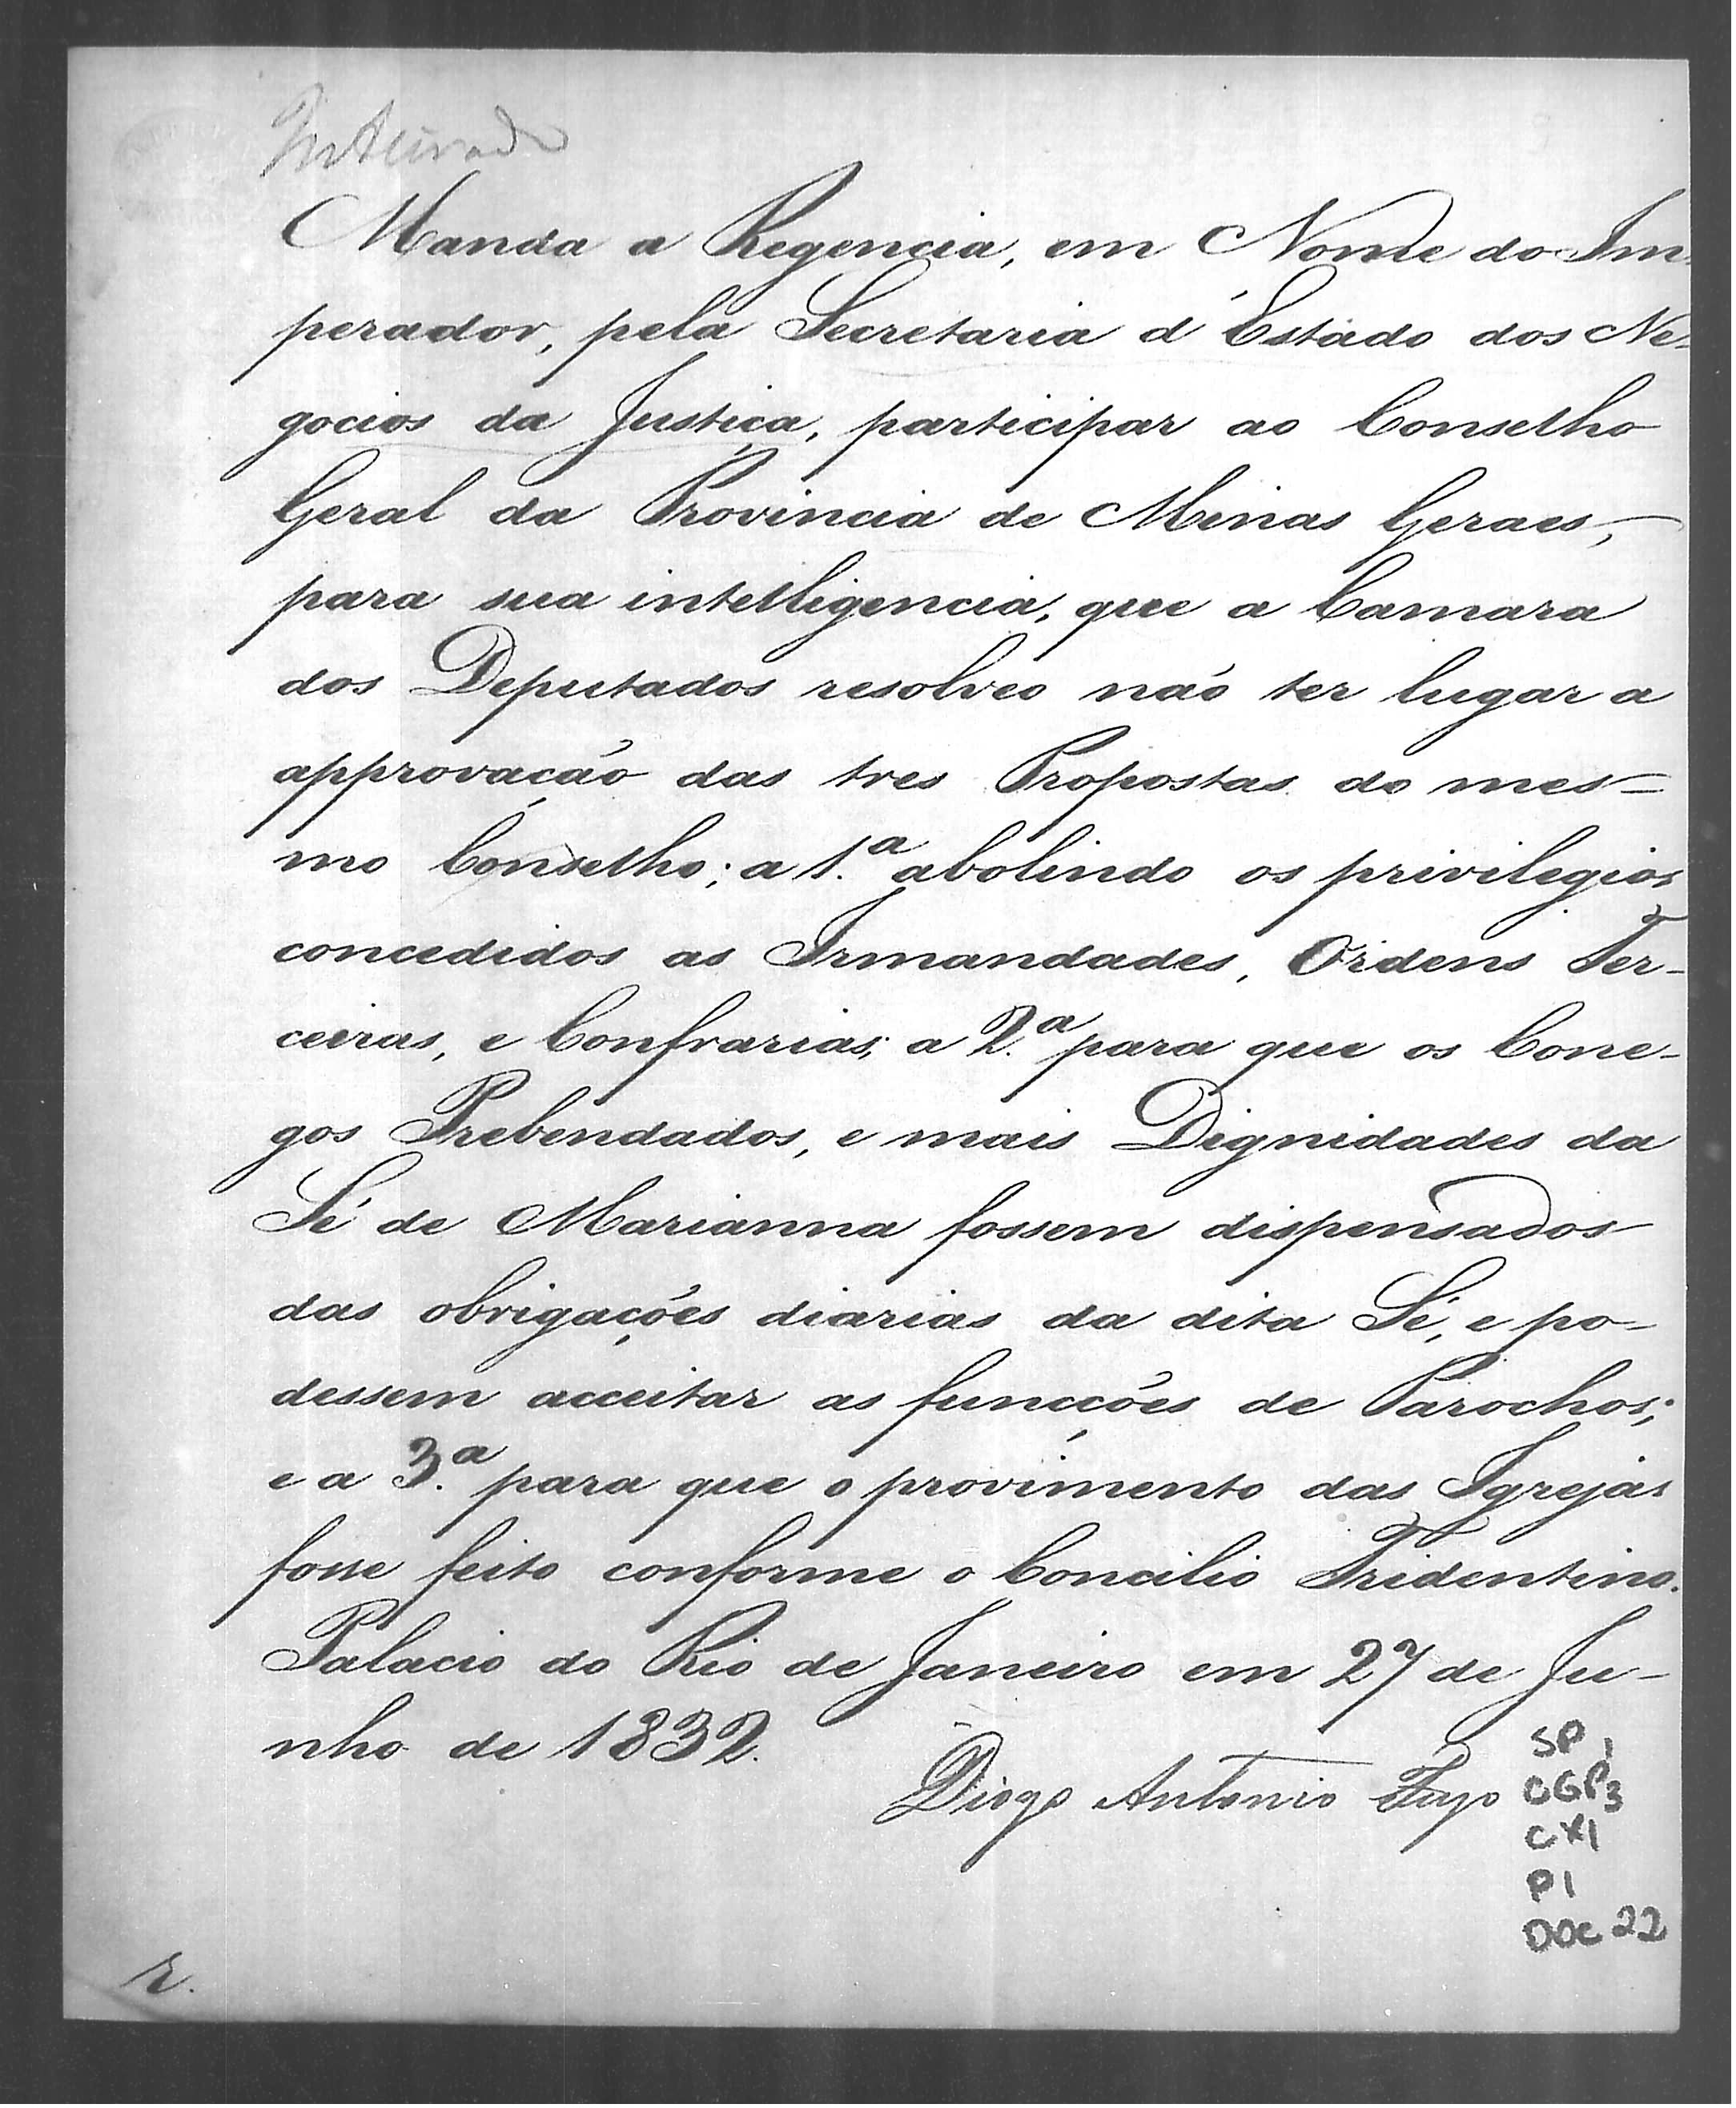 Inteirado
Manda a Regencia, em Nome do Im-
perador, pela Secretaria d'Estado dos Ne-
gocios da Justiça, participar ao Conselho
Geral da Provincia de Minas Geraes,
para sua intelligencia, que a Camara
dos Deputados resolveo não ter lugar a
approvação das tres Propostas do mes-
mo Conselho; a 1.ª abolindo os privilegios
concedidos as Irmandades, Ordens Ter-
ceiras, e Confrarias; a 2.ª para que os Cone-
gos Prebendados, e mais Dignidades da
Sé de Marianna fossem dispensados
das obrigações diarias da dita Sé, e po-
dessem acceitar as funcções de Parochos;
e a 3.ª para que o provimento das Igrejas
fosse feito conforme o Concilio Tridentino.
Palacio do Rio de Janeiro em 27 de Ju-
nho de 1832.
Diogo Antonio Feijo
SP 1
CGP3
CX1
P1
DOC 22